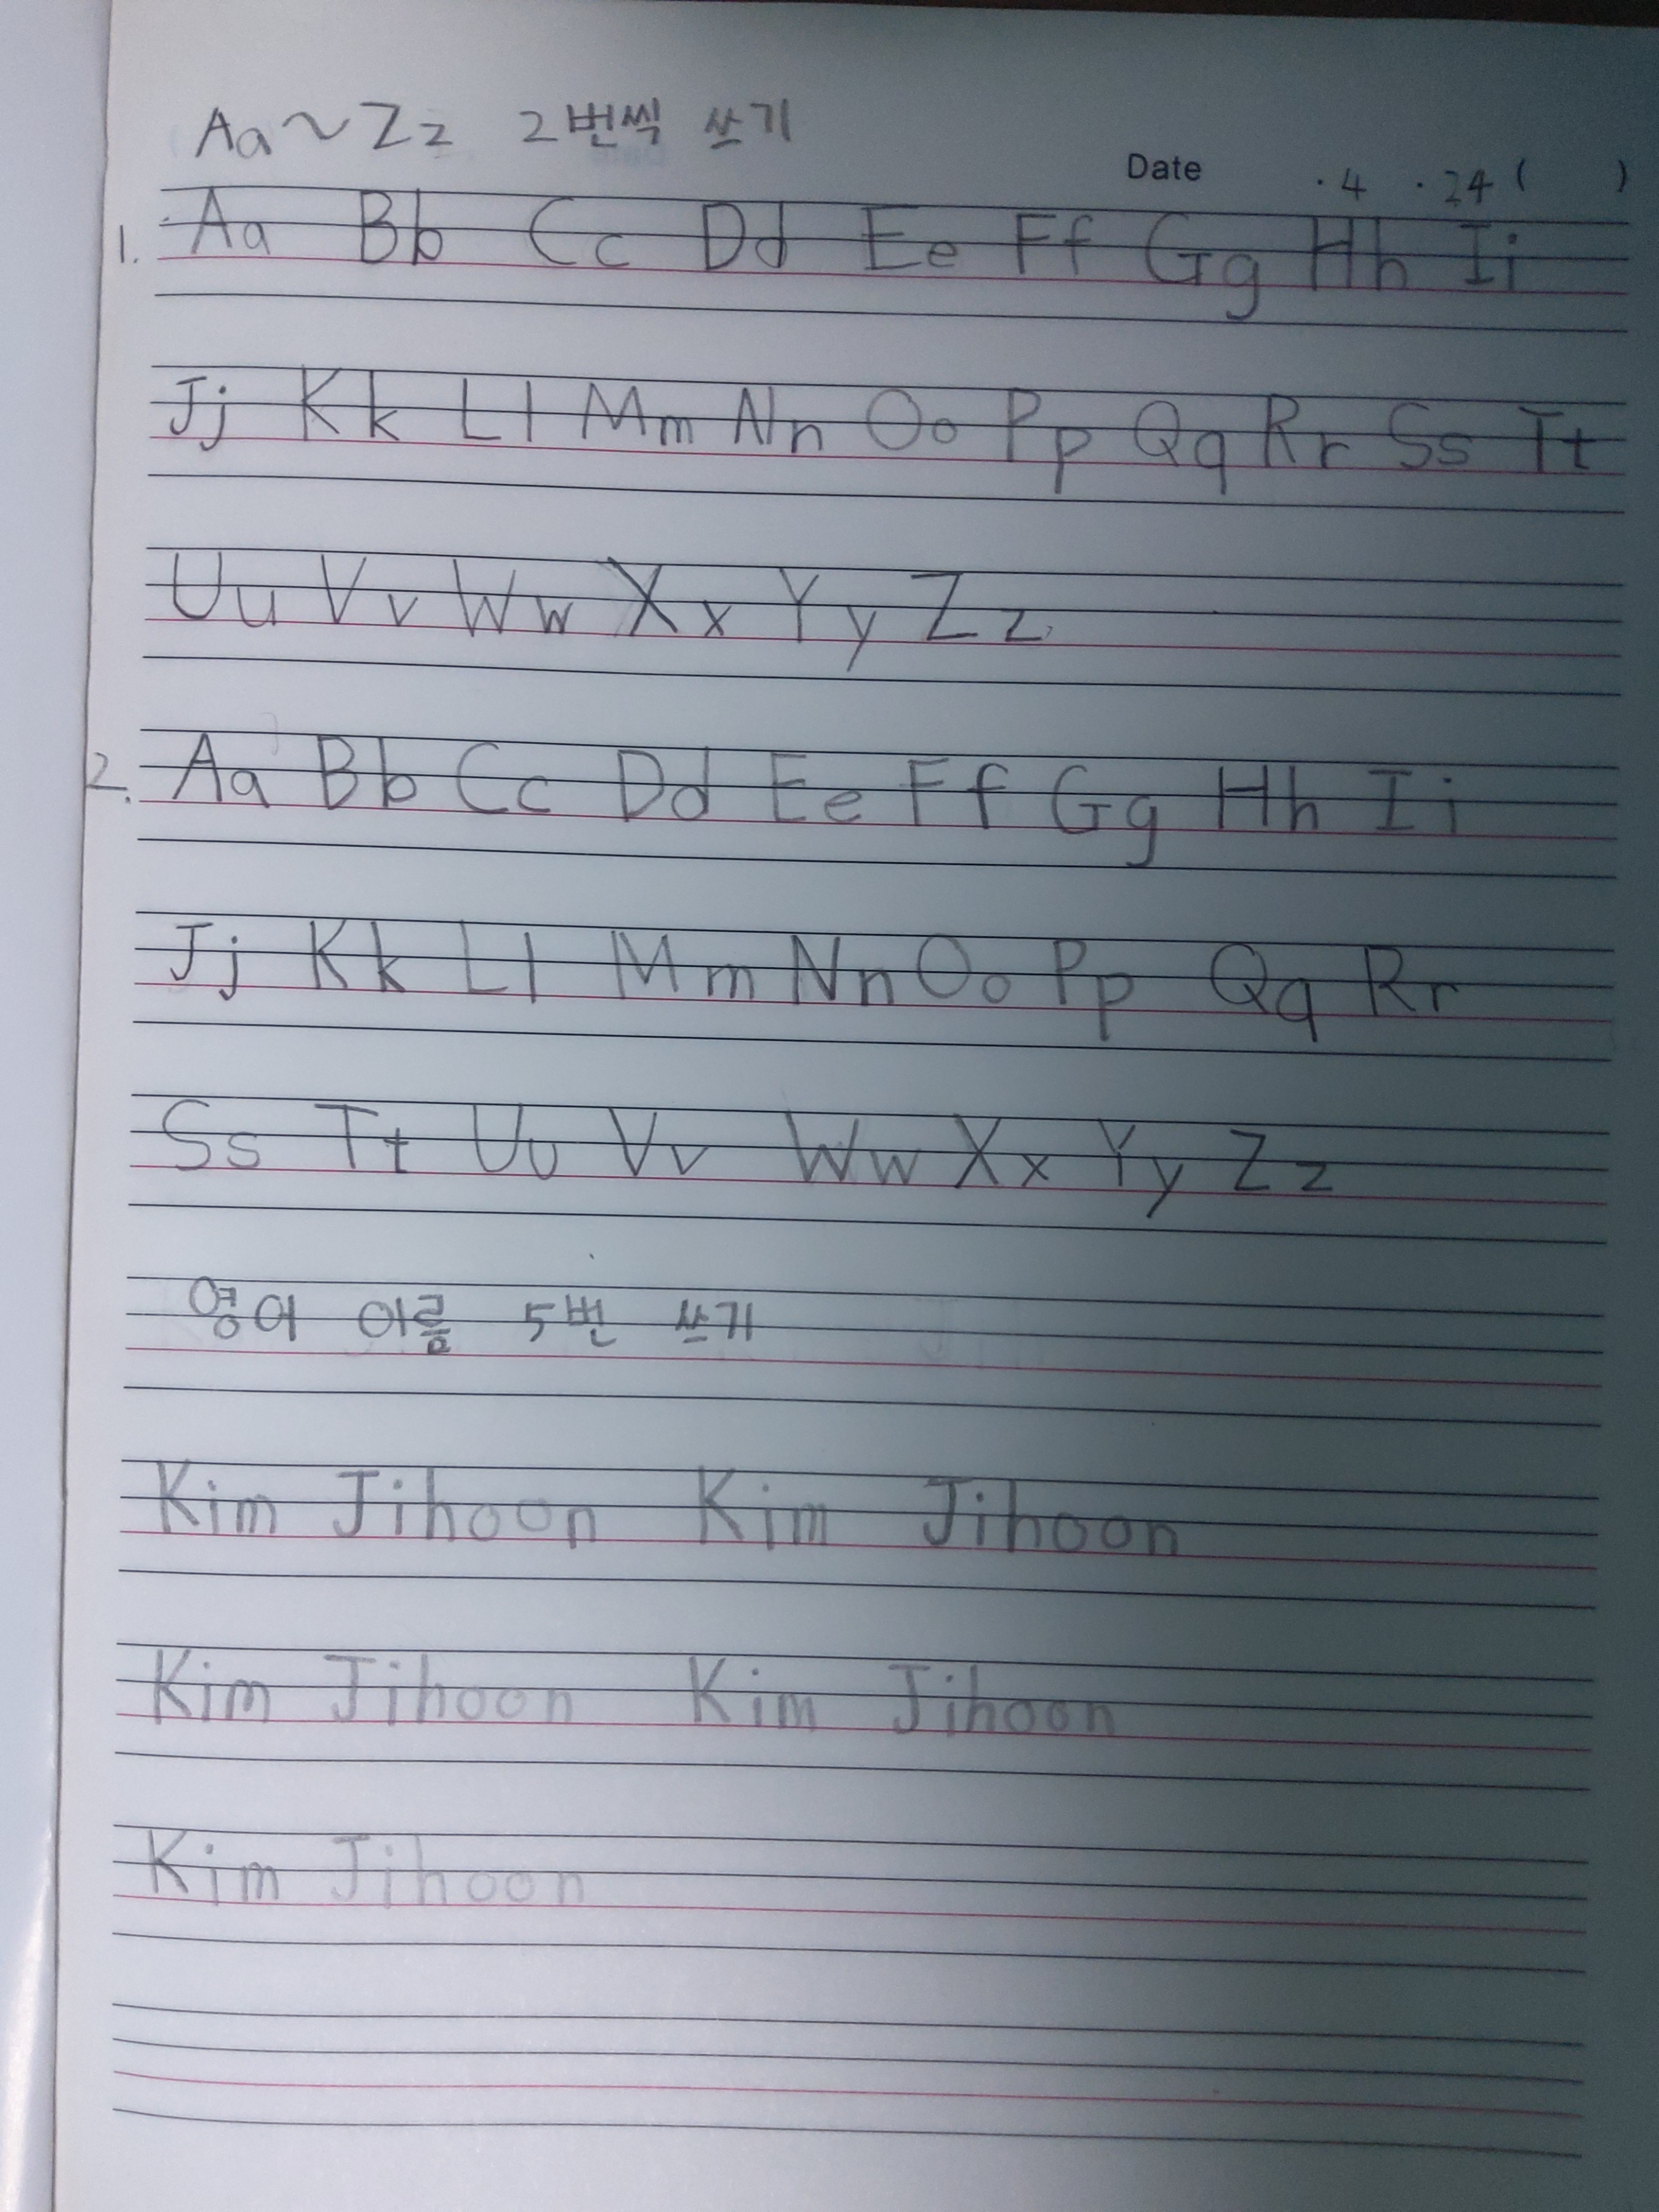 Aa~Zz 2번씩 쓰기
Date . 4 . 24 ( )
1. Aa Bb Cc Dd Ee Ff Gg Hh Ii
Jj Kk Ll Mm Nn Oo Pp Qq Rr Ss Tt
Uu Vv Ww Xx Yy Zz
2. Aa Bb Cc Dd Ee Ff Gg Hh Ii
Jj Kk Ll Mm Nn Oo Pp Qq Rr
Ss Tt Uu Vv Ww Xx Yy Zz
영어 이름 5번 쓰기
Kim Jihoon Kim Jihoon
Kim Jihoon Kim Jihoon
Kim Jihoon